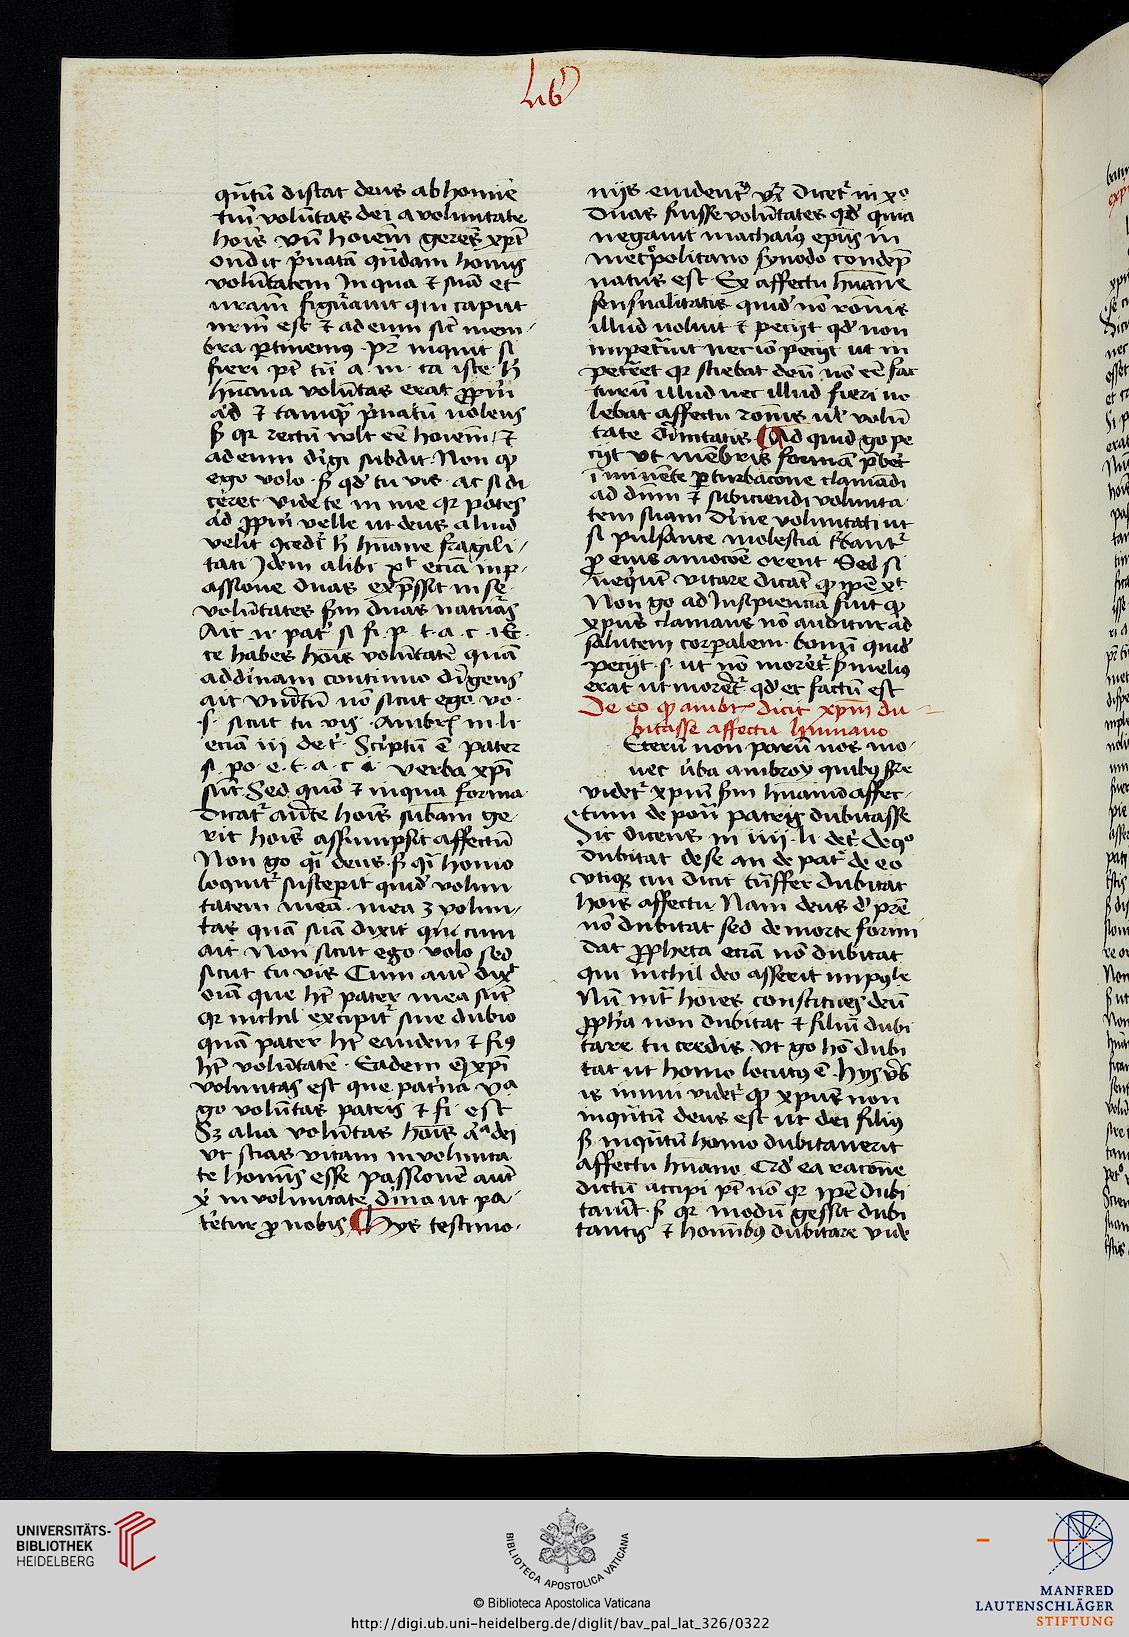 Lib
qntū distat deus ab homīe
tm̄ volūtas dei a voluntate
hoīs vn̄ hoīem gerēs xp̄c
ondit p̄uatā qn̄dam homīs
volūtatem In qua ⁊ suā et
nram figurauit qui caput
nrm est ⁊ ad eum sic̄ mem
bra ꝑtinemꝰ pr̄ inquit si
fieri pt̄ tn̄ a m ca iste h̄
hūana voluntas erat ꝓpriū
ad ⁊ tamqͣ p̄uatū uolens
sꝫ qr rectū vult ee hoiem ⁊
ad eum dīgi subdit Non qd
ego volo sꝫ qd tu vis ac si di
ceret vide te in me qr potes
ad ꝓpriū velle ut deus aliud
velit ꝯcedit̄ h̄ hūane fragili
tati Idem alibi xt̄ eciā in p
assione duas exp̄ssit in se
voluntates scdm duas naturas
Ait n̄ pat̄ si fi p t a c i E
ce habes hoīs voluntatē quā
ad diuinam continuo dirigens
ait veruntū nō sicut ego vo
s sicut tu vis Ambrꝰ in li
eciā iii de t Scriptū ē pater
si po e t a c i verba xpī
sūt Sed quō ⁊ in qua forma
dicāt̄ adūte hoīs subam ge
rit hoīs assumpsit affectū
Non go qi deus sꝫ qi homo
loquit̄ suscepit quid volun
tatem meā mea ꝫ volun
tas quā suā dixit qui cum
ait Non sicut ego volo sed
sicut tu vis Cum aut dix
oīa que ht̄ pater mea sūt
qr nichil excipit̄ sine dubio
quā pater ht̄ eandem ⁊ fiꝰ
ht̄ voluntatē Eadem ꝫ xpī
voluntas est que pat̄na vna
go voluntas patris ⁊ fi est
Sꝫ alia voluntas hoīs aͣ dei
vt scias vitam in volunta
te homīs esse passionē aut
xi in voluntate dīna ut pa
teret̄ur ꝓ nobis Hys testimo
niis euident̄ vn̄ dicet̄ in xo
duas fuisse voluntates qd quia
negauit machariꝰ epūs in
metꝓpolitano synodo condēp
natus est Ex affectu hūane
sensualitatis quid nō roīnis
illud uoluit ⁊ peciit qd non
impetrauit nec iō peciit ut im
petret qr sciebat deū nō eē fac
turū illud nec illud fieri uo
lebat affectu ronis ul volū
tate diuinitatis Ad quid go pe
ciit vt mēbris formā p̄bet
iminente ꝑturbacōne clamādi
ad dn̄m ⁊ subiciendi volunta
tem suam diuine voluntati ut
si pulsante molestia tristant̄
ꝓ eius amocōe orent Sed si
nequeūt vitare dicāt qd ipē xt̄
Non go ad Insipienciā fuit qd
xpūs clamans nō auditur ad
salutem corꝑalem bonū quid
peciit s ut nō moret̄ sꝫ melius
erat ut moret̄ qd et factū est
De eo qd ambrꝰ dicit xpm du
bitasse affectu humano
Eterū non parū nos mo
uet v̄ba ambrosij quibꝰ fre
videt̄ xpm scdm humanū affec
tum de potn̄ patris dubitasse
Sic dicens in iiii li de t̄ De qo
dubitat de se an de pat̄ de eo
vtiqꝫ cui dicit tn̄ffer dubitat
hoīs affectu Nam deus de p̄re
nō dubitat sed de morte formi
dat ꝓpheta eciā nō dubitat
qui nichil deo asserit impossle
Nū int̄ hoīes constitues deū
ꝓpha non dubitat ⁊ filiū dubi
tare tu credis Vt go ho dubi
tat ut homo locutꝰ ē hys v̄b
is innui videt̄ qd xpus non
inquntū deus est ut dei filiꝰ
sꝫ inquntū homo dubitauerit
affectu hūano Qd ea racōne
dictū accipi pt̄ nō qr ipē dubi
tauit sꝫ qr modū gessit dubi
tantis ⁊ hominibꝰ dubitare vide
UNIVERSITÄTS-
BIBLIOTHEK
HEIDELBERG
BIBLIOTECA APOSTOLICA VATICANA
© Biblioteca Apostolica Vaticana
http://digi.ub.uni-heidelberg.de/diglit/bav_pal_lat_326/0322
MANFRED
LAUTENSCHLÄGER
STIFTUNG